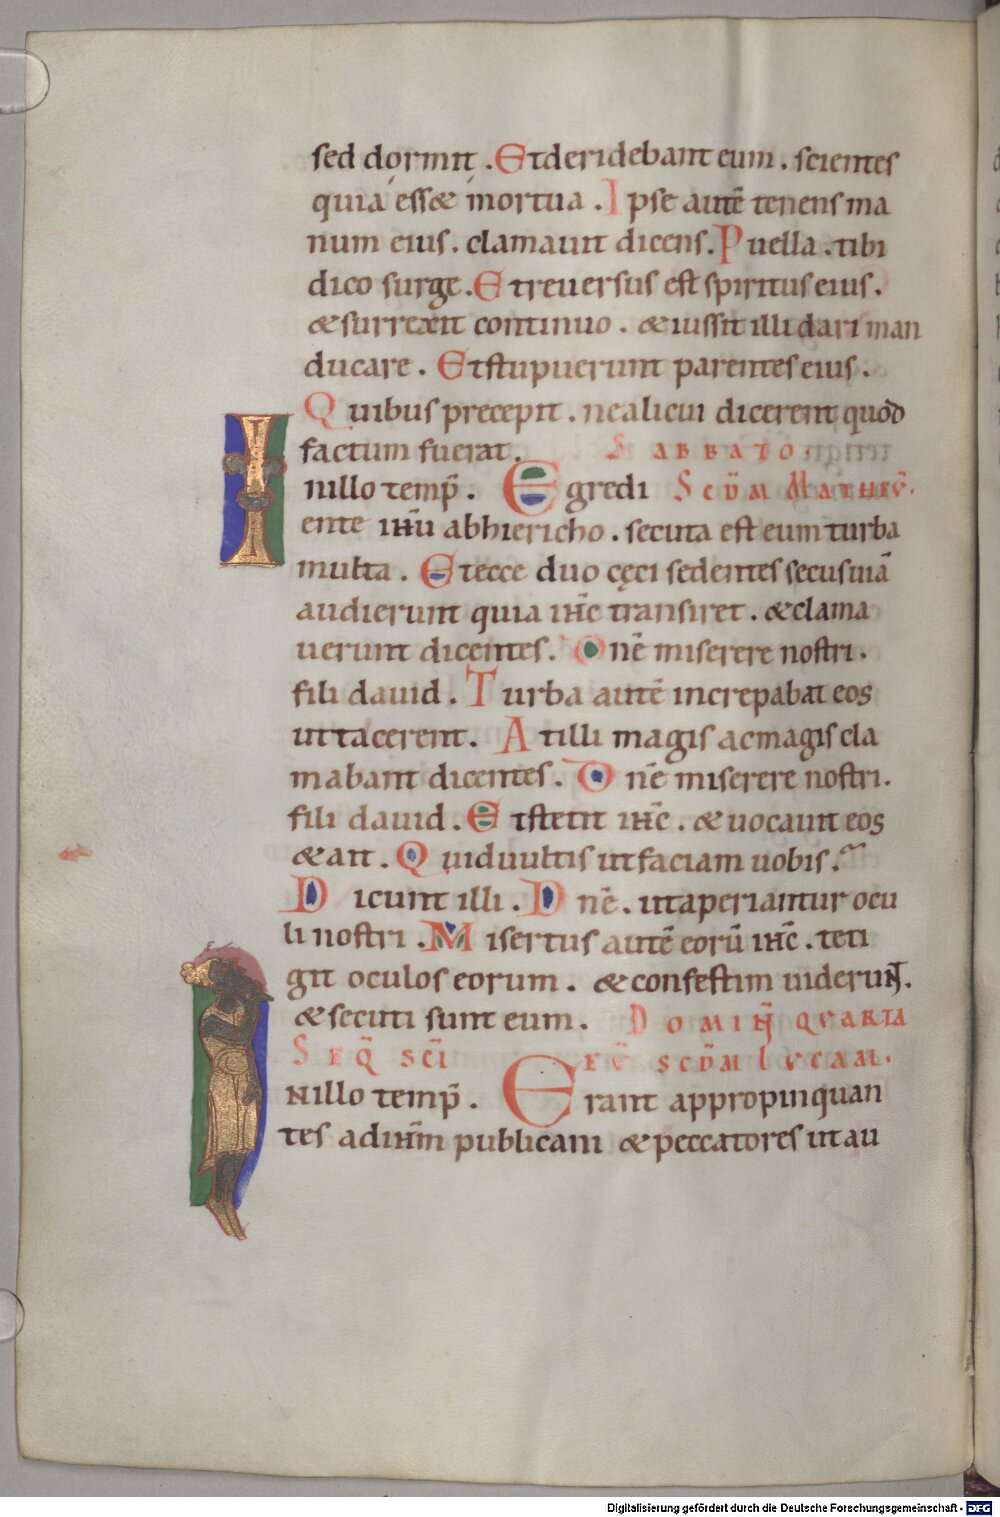 sed dormit . Et deridebant eum . scientes
quia esset mortua . Ipse autē tenens ma
num eius . clamauit dicens . Puella . tibi
dico surge . Et reuersus est spiritus eius .
& surrexit continuo . & iussit illi dari man
ducare . Et stupuerunt parentes eius .
Quibus precepit . ne alicui dicerent quod
factum fuerat . SABBATO .
In illo temp̄ . Egredi SCDM MATHEV̄ .
ente ihu abhiericho . secuta est eum turba
multa . Et ecce duo cęci sedentes secus uiā
audierunt quia ihc transiret . & clama
uerunt dicentes . Dnē miserere nostri .
fili dauid . Turba autē increpabat eos
ut tacerent . At illi magis ac magis cla
mabant dicentes . Dnē miserere nostri .
fili dauid . Et stetit ihc . & uocauit eos
& ait . Quid uultis ut faciam uobis .
Dicunt illi . Dnē . ut aperiantur ocu
li nostri . Misertus autē eorū ihc . teti
git oculos eorum . & confestim uiderunt .
& secuti sunt eum . DOMIN̄ QVARTA
SEQ̄ SCI EV̄ SCDM LVCAM .
In illo temp̄ . Erant appropinquan
tes ad ihm publicani & peccatores ut au
Digitalisierung gefördert durch die Deutsche Forschungsgemeinschaft - DFG